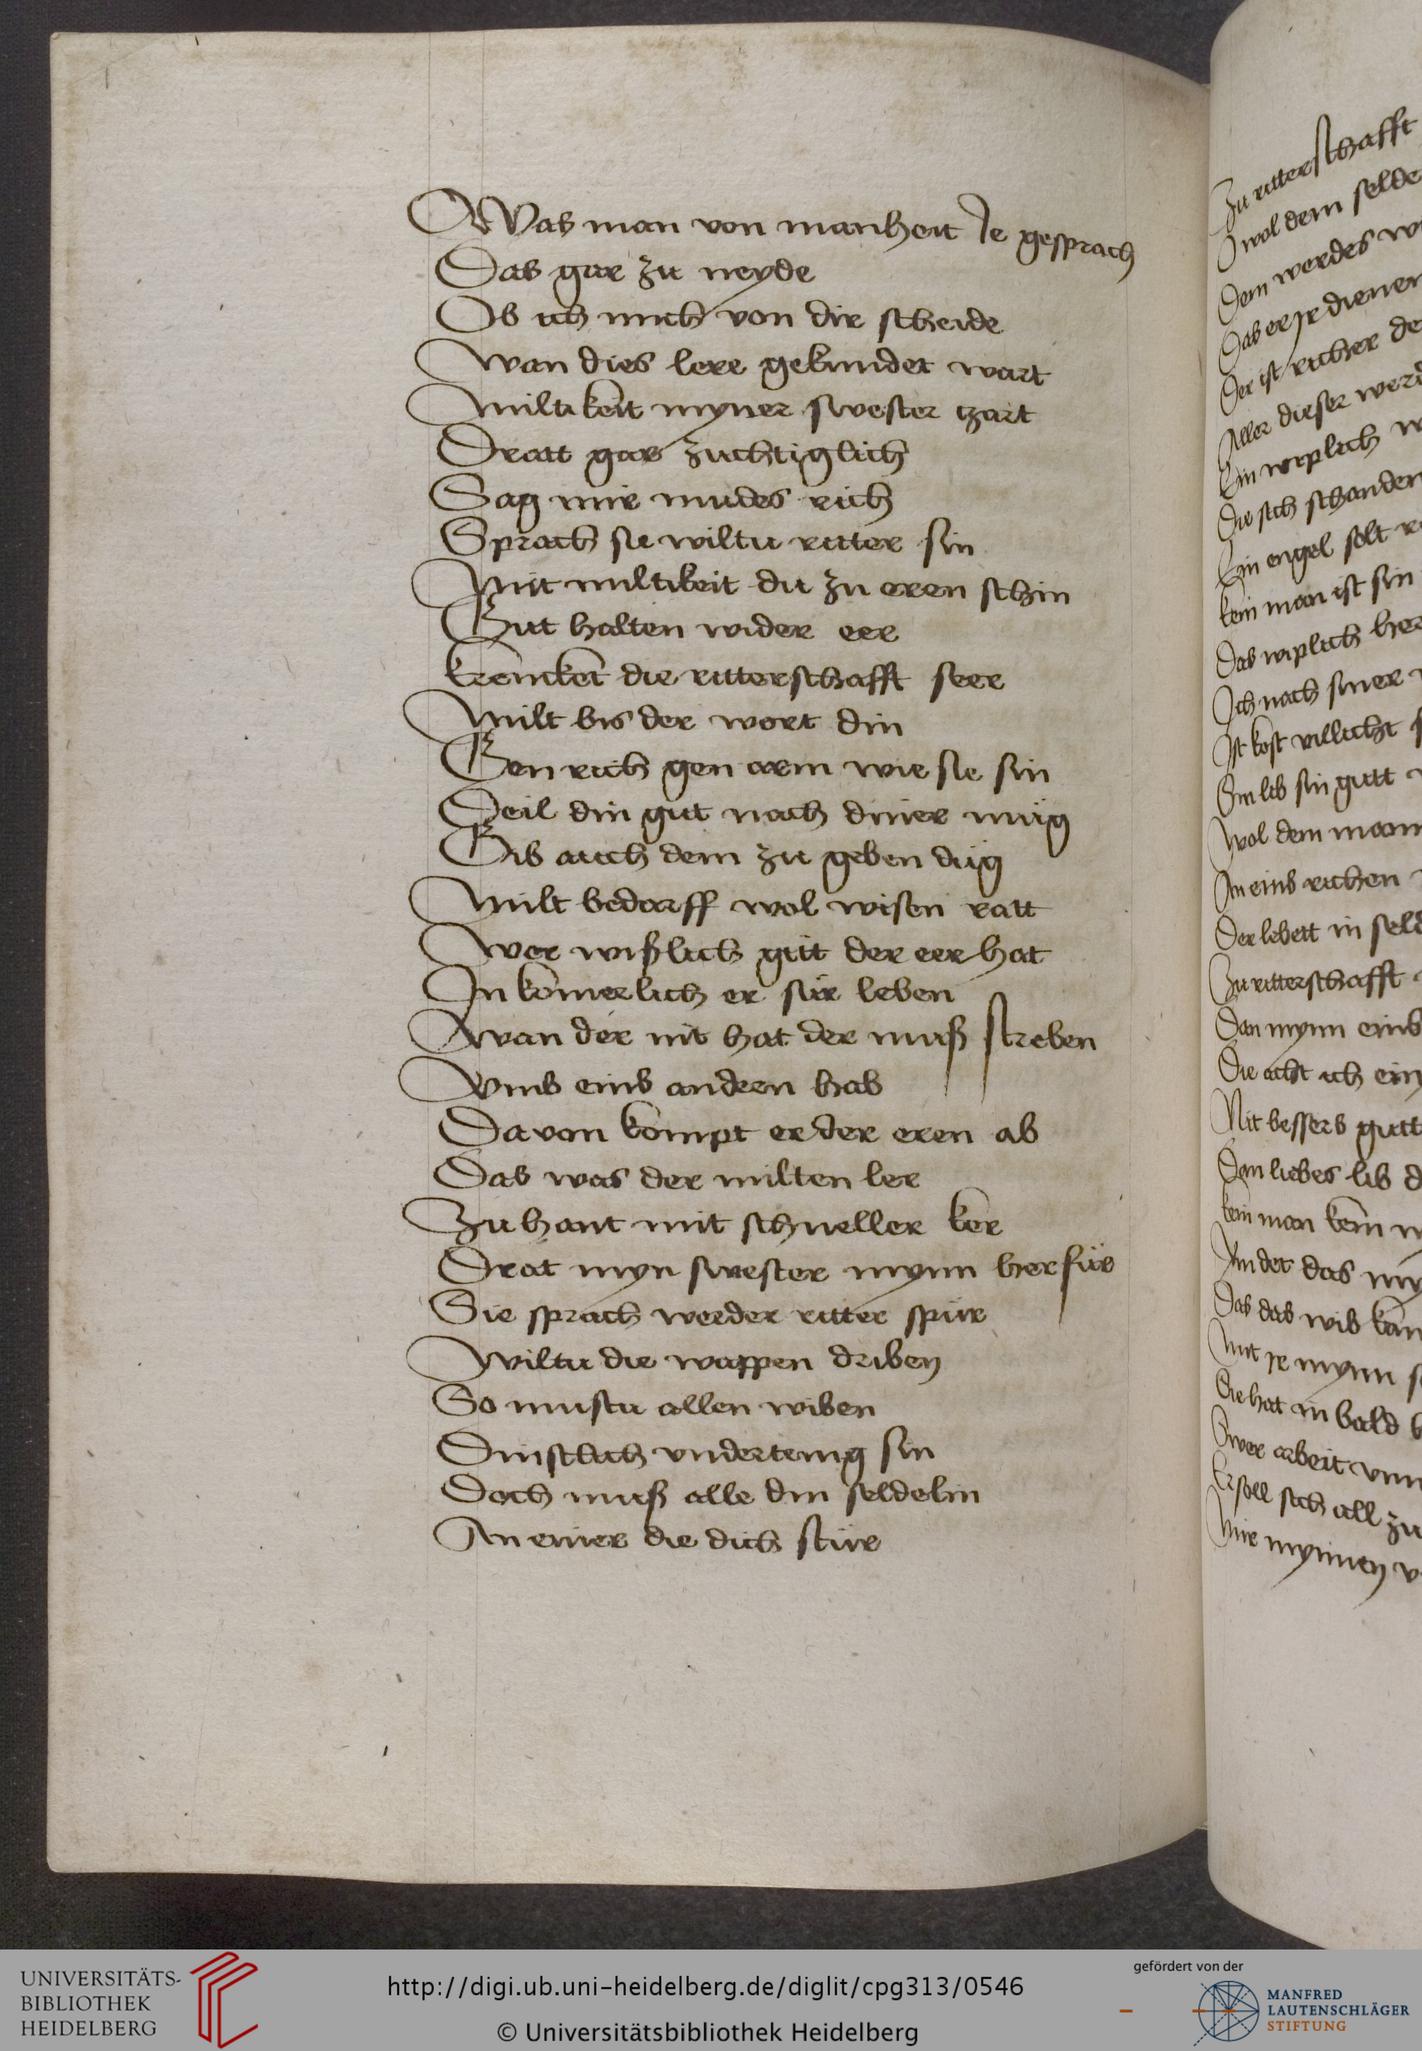 Was man von manheit Je gesprach
Das gar zu neyde
Ob ich mich von dir scheide
Wan dies lere gekundet wart
Miltikeit myner swester zart
Dratt gar zuchtiglich
Sag mir mudes rich
Sprach sie wiltu ritter sin
Mit miltikeit du zu eren schin
Gut halten wider eer
krencket die ritterschafft seer
Milt bis der wort din
Gen rich gen arm wie sie sin
Deil din gut nach diner müg
Gib auch dem zu geben düg
Milt bedarff wol wisen ratt
Wer wißlich gitt der eer hat
In komerlich er für leben
Wan der nit hat der muß streben
Vmb eins andern hab
Da von kompt er der eren ab
Das was der milten ler
Zu hant mit schneller ker
Drat myn swester mynn herfür
Sie sprach werder ritter spür
Wiltu die wappen driben
So mustu allen wiben
Dinstlich vndertenig sin
Doch muß alle din seldelin
An einer die dich stür
Zu ritterschafft
wol dem selde
Dem werdes
Das er Jr diener
Der ist richer
Aller dieser
Ein wiplich
Die sich schanden
Ein engel solt
kein man ist sin
Das wiplich
Ich nach siner
Ist kost villicht
Sin lib sin gutt
Wol dem mann
An eins richen
Der lebett in
Zu ritterschafft
Dan mynn eins
Die acht ich ein
Nit bessers gutt
Dan liebes lib
kein man kein
Findet das
Das das wib kan
Mit Jr mynn
Die hat in bald
Wer arbeit vnn
Er soll sich all zu
Mir mynnen
UNIVERSITÄTS-
BIBLIOTHEK
HEIDELBERG
http://digi.ub.uni-heidelberg.de/diglit/cpg313/0546
© Universitätsbibliothek Heidelberg
gefördert von der
MANFRED
LAUTENSCHLÄGER
STIFTUNG